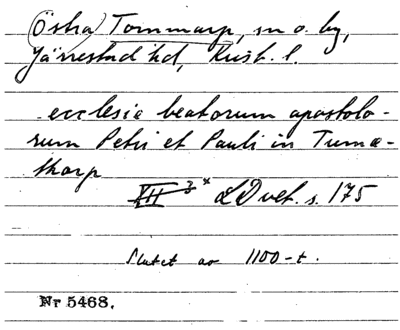 (Östra) Tommarp, sn o. by,
Järrestad hd, Krist. l.
ecclesie beatorum apostolo-
rum Petri et Pauli in Tuma-
thorp
XII 3 x LD vet. s. 175
Slutet av 1100-t.
Nr 5468.